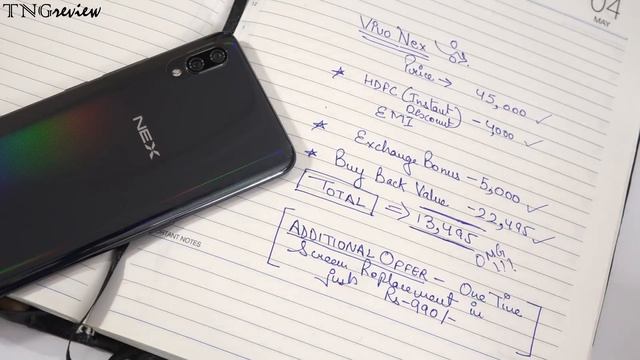 TNGreview
04
MAY
12
Vivo Nex
Price → 45,000
* HDFC (Instant Discount) - 4000 ✓
EMI
* Exchange Bonus - 5,000 ✓
* Buy Back Value - 22,495 ✓
TOTAL ⇒ 13,495
OMG!!!
NEX
IMPORTANT NOTES
[ADDITIONAL OFFER - One Time
Screen Replacement in
just Rs-990/-]